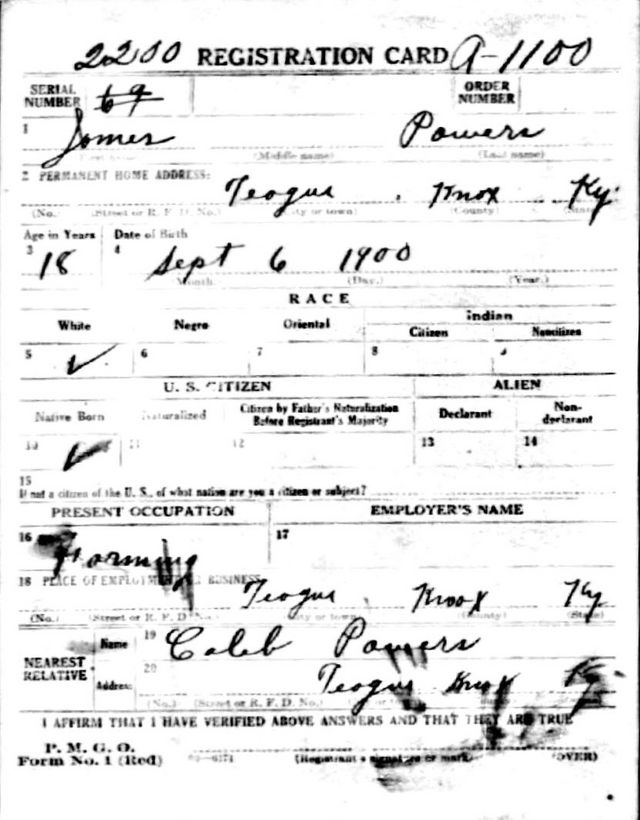 2200 REGISTRATION CARD A-1100
SERIAL NUMBER 69 ORDER NUMBER
1 James Powers
(First name) (Middle name) (Last name)
2 PERMANENT HOME ADDRESS:
Teague Knox Ky
(No.) (Street or R. F. D. No.) (City or town) (County) (State)
Age in Years Date of Birth
3 18 4 Sept 6 1900
Month (Day.) (Year.)
RACE
White Negro Oriental Indian
Citizen Noncitizen
5 ✓ 6 7 8 9
U. S. CITIZEN ALIEN
Native Born Naturalized Citizen by Father's Naturalization Before Registrant's Majority Declarant Non-declarant
10 ✓ 11 12 13 14
15
If not a citizen of the U. S., of what nation are you a citizen or subject?
PRESENT OCCUPATION EMPLOYER'S NAME
16 Farming 17
18 PLACE OF EMPLOYMENT OR BUSINESS:
Teague Knox Ky
(No.) (Street or R. F. D. No.) (City or town) (County) (State)
NEAREST RELATIVE Name 19 Caleb Powers
Address 20 Teague Knox Ky
(No.) (Street or R. F. D. No.)
I AFFIRM THAT I HAVE VERIFIED ABOVE ANSWERS AND THAT THEY ARE TRUE
P. M. G. O.
Form No. 1 (Red) (Registrant's signature or mark) (OVER)